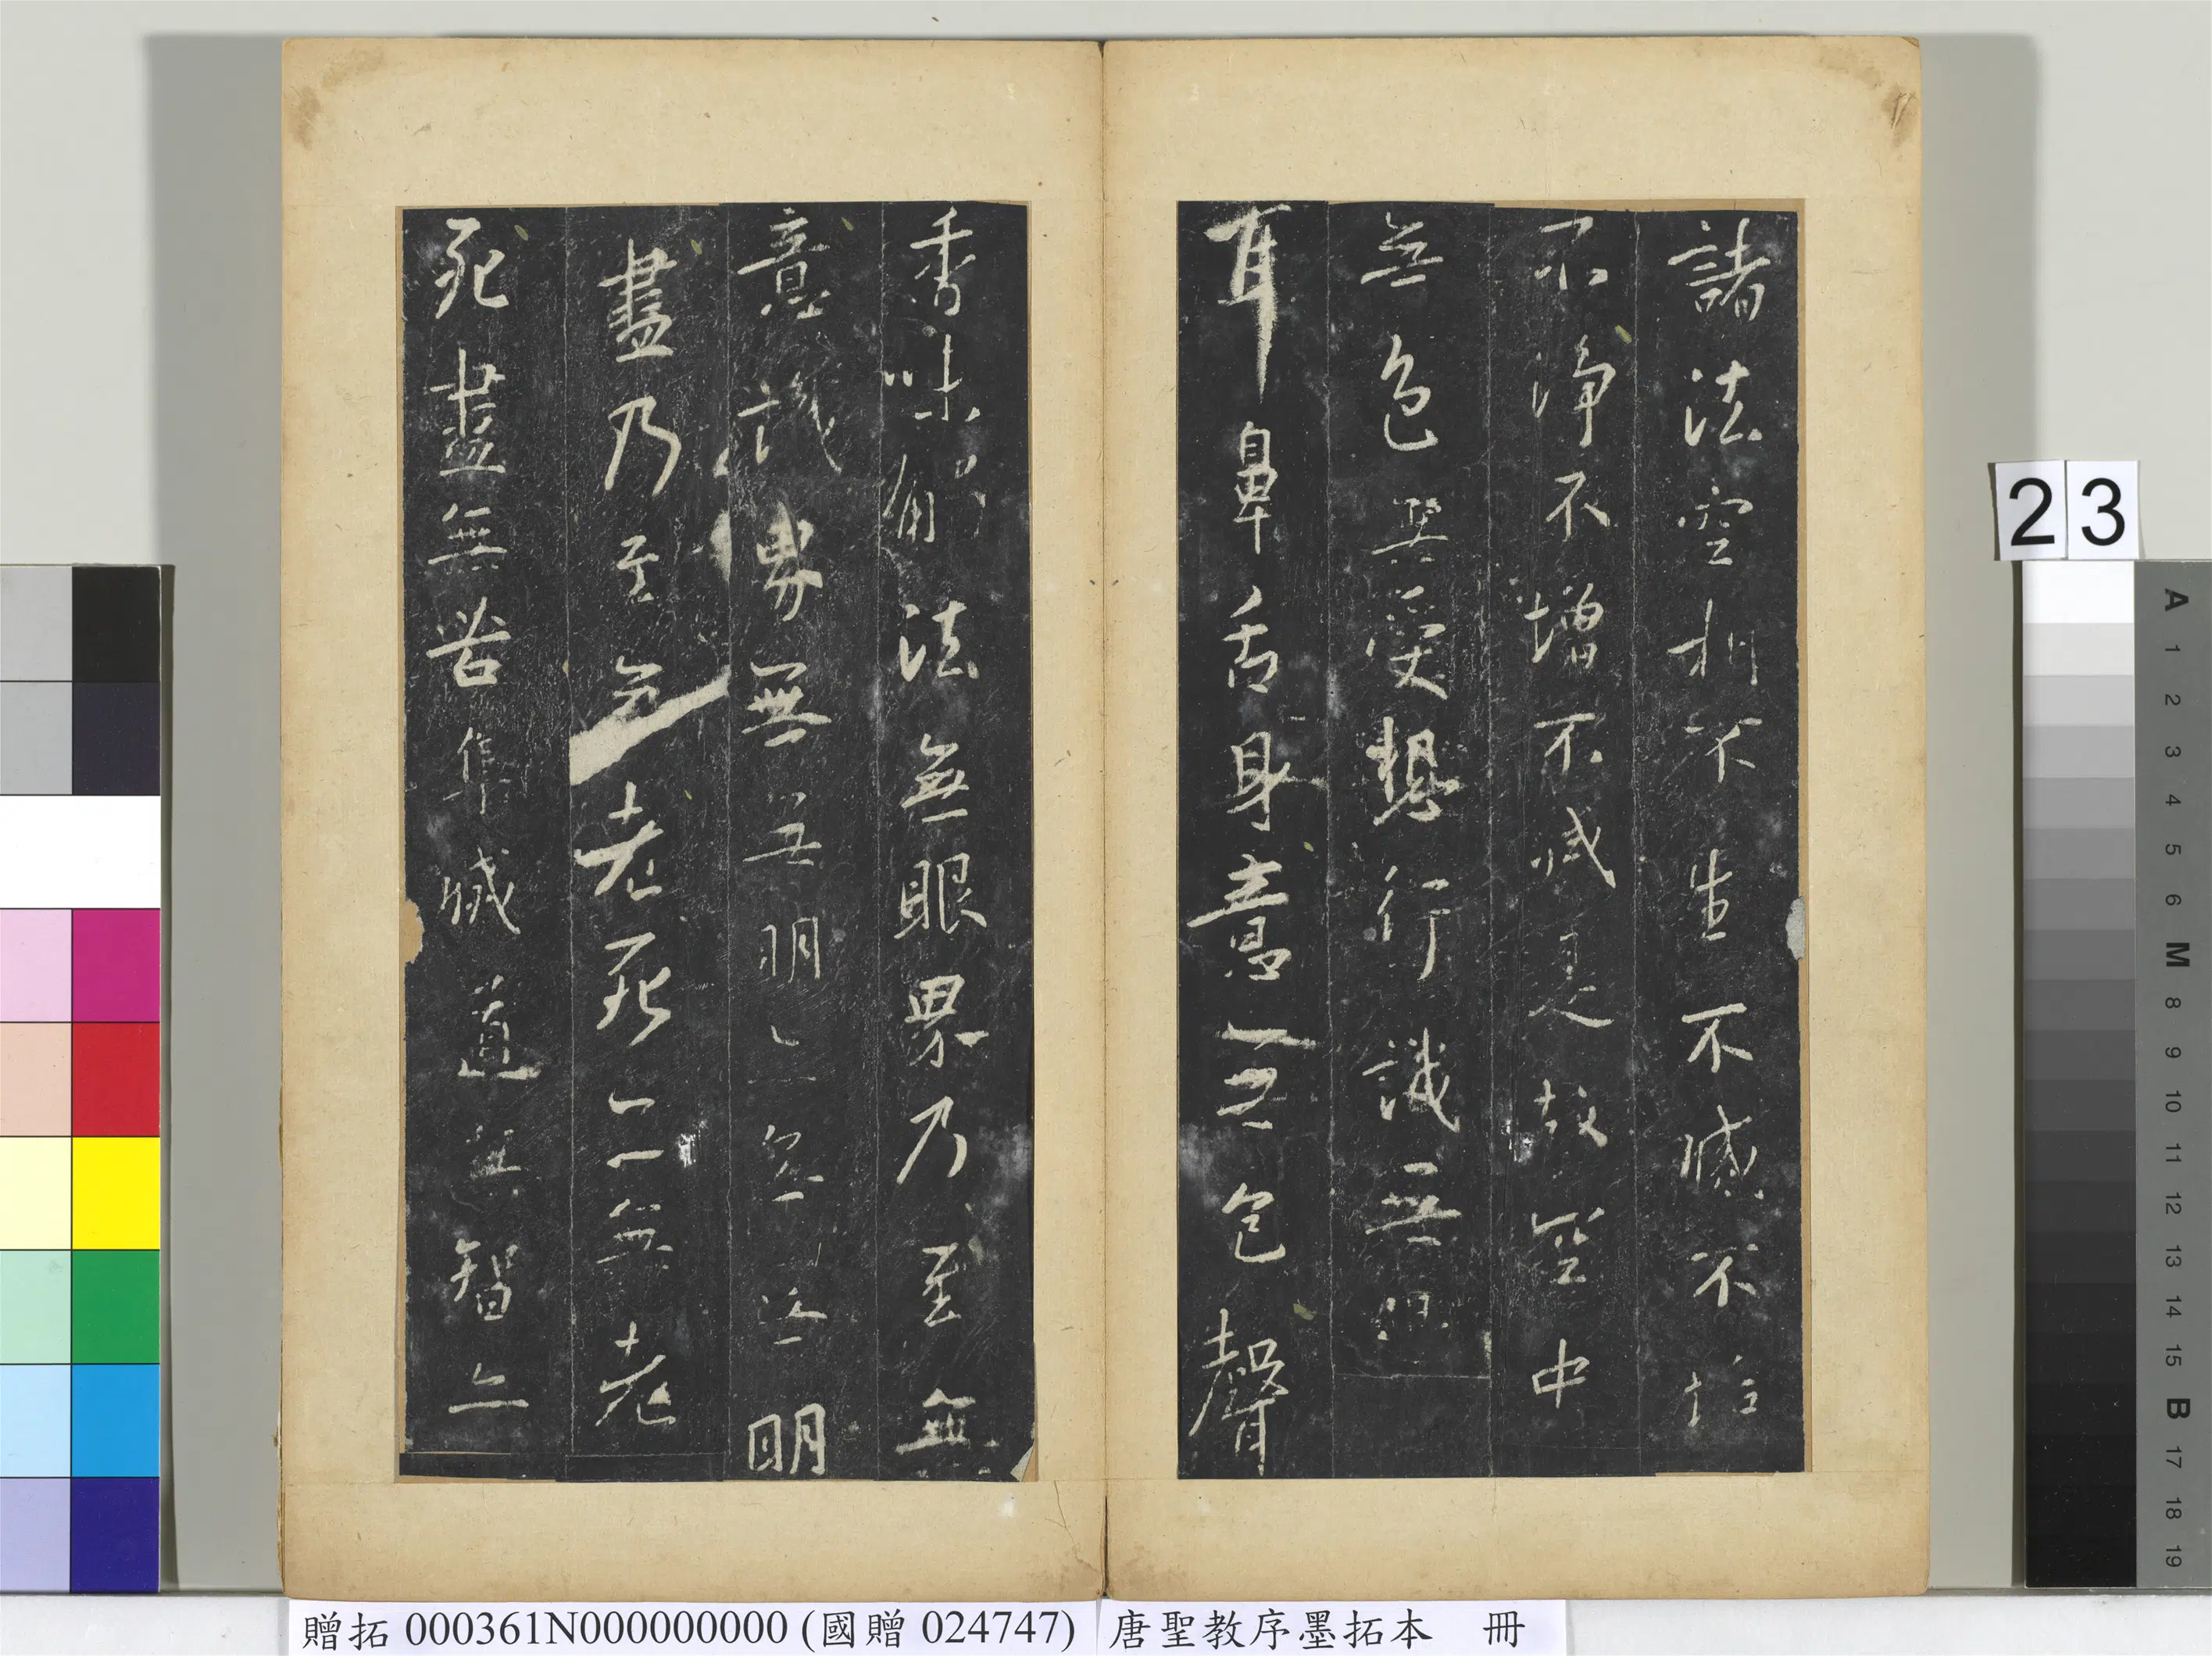 諸法空相不生不滅不垢
不淨不增不減是故空中
無色無受想行識無眼
耳鼻舌身意無色聲
香味觸法無眼界乃至無
意識界無無明亦無無明
盡乃至無老死亦無老
死盡無苦集滅道無智亦
23
A 1 2 3 4 5 6 M 8 9 10 11 12 13 14 15 B 17 18 19
贈拓 000361N000000000 (國贈 024747) 唐聖教序墨拓本 冊